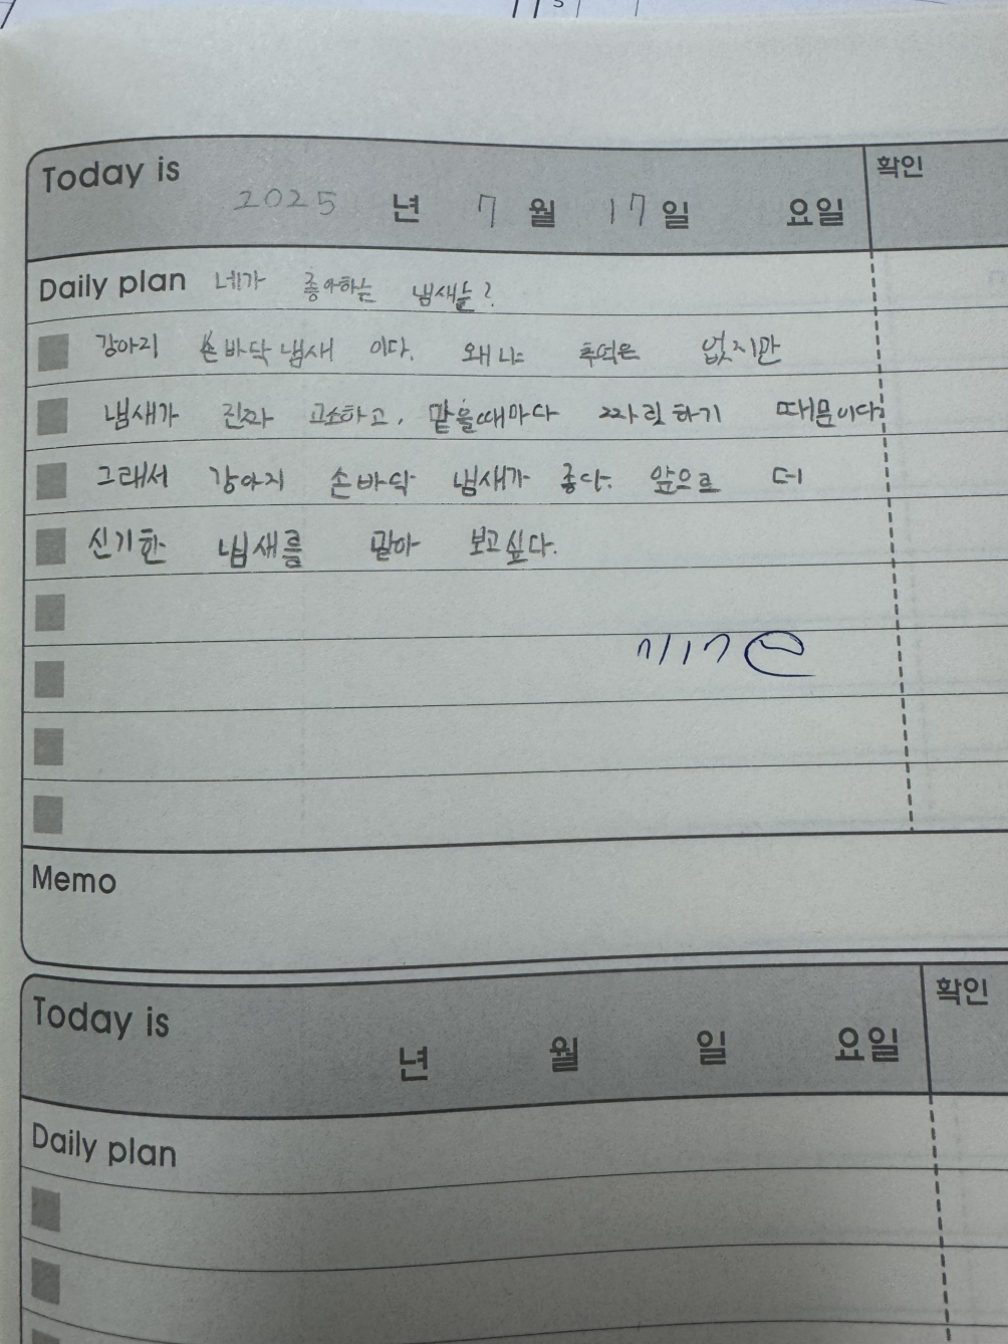 Today is 2025 년 7 월 17 일 요일 확인
Daily plan 네가 좋아하는 냄새는?
강아지 손바닥 냄새 이다. 왜냐 추억은 없지만
냄새가 진짜 고소하고, 맡을때마다 짜릿하기 때문이다.
그래서 강아지 손바닥 냄새가 좋다. 앞으로 더
신기한 냄새를 맡아 보고싶다.
7/17
Memo
Today is 년 월 일 요일 확인
Daily plan